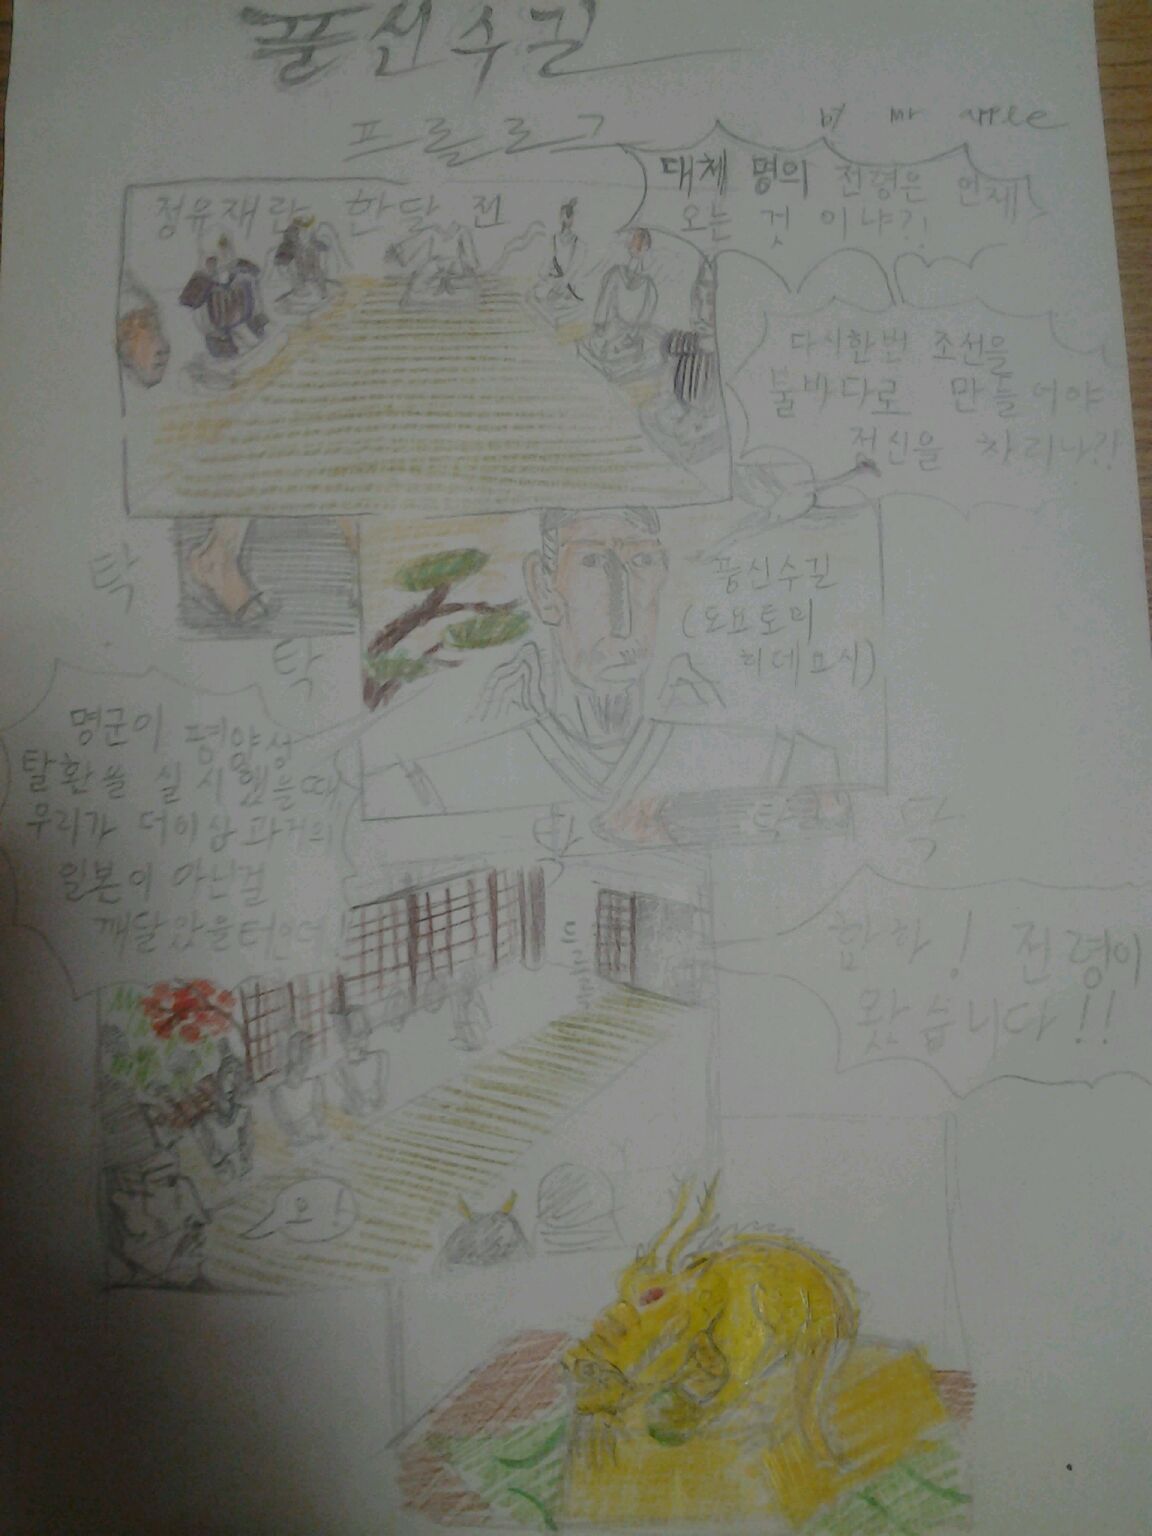 풍신수길
프롤로그
정유재란 한달 전
대체 명의 전령은 언제
오는 것 이냐?!
다시한번 조선을
불바다로 만들어야
정신을 차리나?!
탁
탁
풍신수길
(도요토미
히데요시)
명군이 평양성
탈환을 실시했을때
우리가 더이상 과거의
일본이 아닌걸
깨달았을터인데!
탁
탁
탁
드르륵
합하! 전령이
왔습니다!!
오!